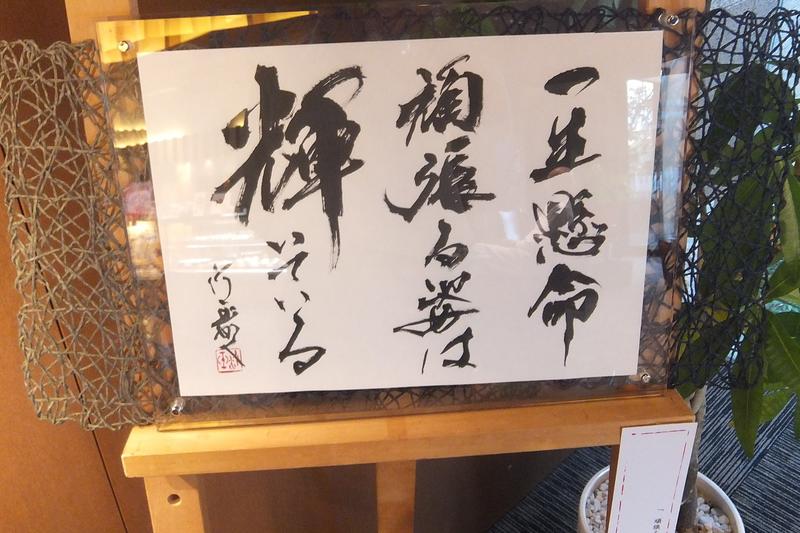 一生懸命
頑張る姿は
輝いている